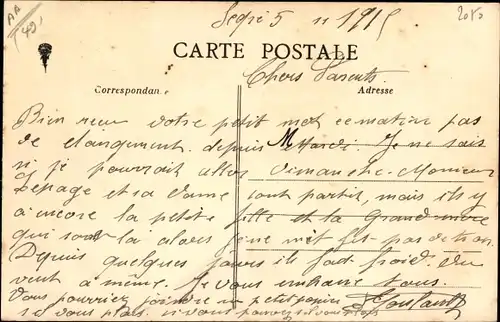 AA
49
Segré 5 11 1915
20f0
CARTE POSTALE
Chers Parents
Correspondance
Adresse
Bien reçu votre petit mot ce matin pas
de changement depuis Mardi. Je ne sais
si je pourrait aller Dimanche. Monieur
Lepage et sa dame sont partir, mais il y
a encore la petite fille et la Grand mère
qui sont là alors je ne
Depuis quelques jours il fait froid. du
vent a même. Je vous embrasse tous.
Vous pourriez joindre un petit papier
si vous plais si vous pouvez si vous plais